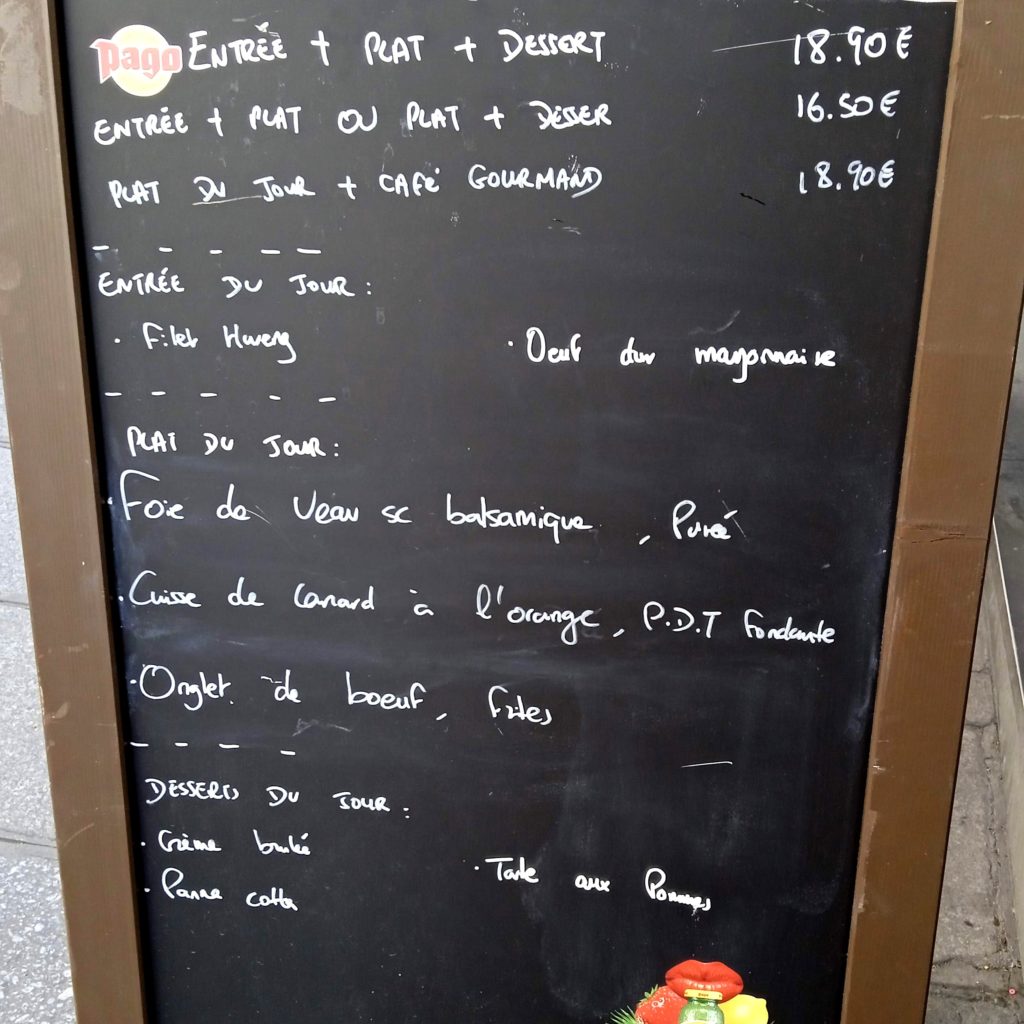 Pago ENTRÉE + PLAT + DESSERT 18.90€
ENTRÉE + PLAT OU PLAT + DESSER 16.50€
PLAT DU JOUR + CAFÉ GOURMAND 18.90€
ENTRÉE DU JOUR :
· Filet Hareng · Oeuf dur mayonnaise
PLAT DU JOUR :
· Foie de Veau sc balsamique, Purée
· Cuisse de Canard à l'orange, P.D.T fondante
· Onglet de boeuf, frites
DESSERTS DU JOUR :
· Crème brulé
· Tarte aux Pommes
· Panna cotta